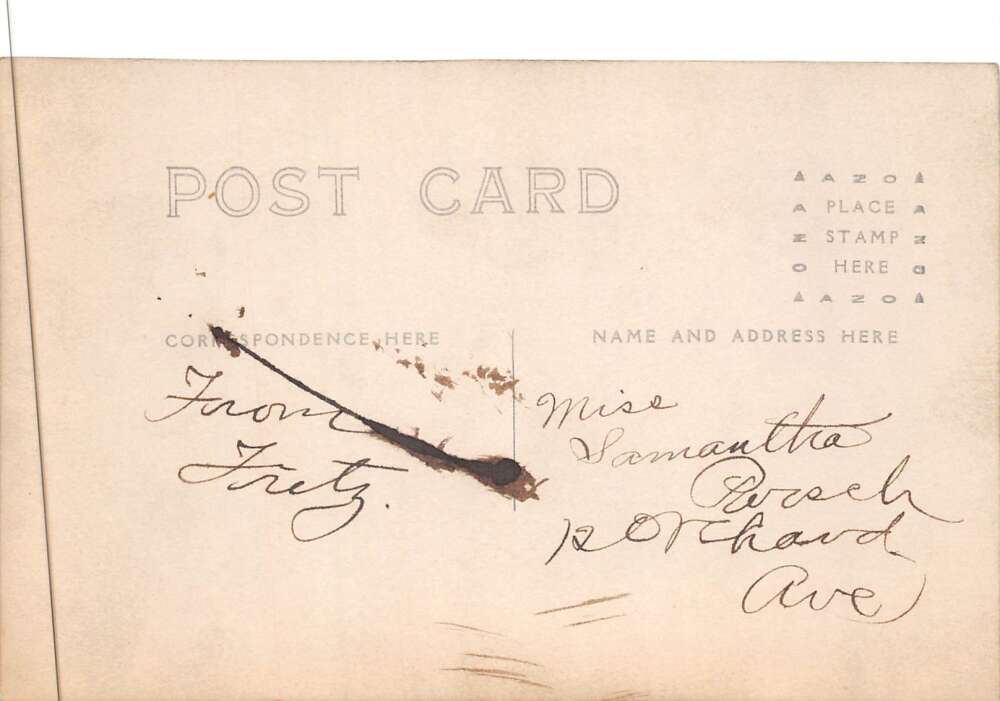 POST CARD
AZO
A PLACE A
Z STAMP Z
O HERE O
AZO
CORRESPONDENCE HERE
NAME AND ADDRESS HERE
From
Fretz.
Miss
Samantha
12 Orchard
Ave